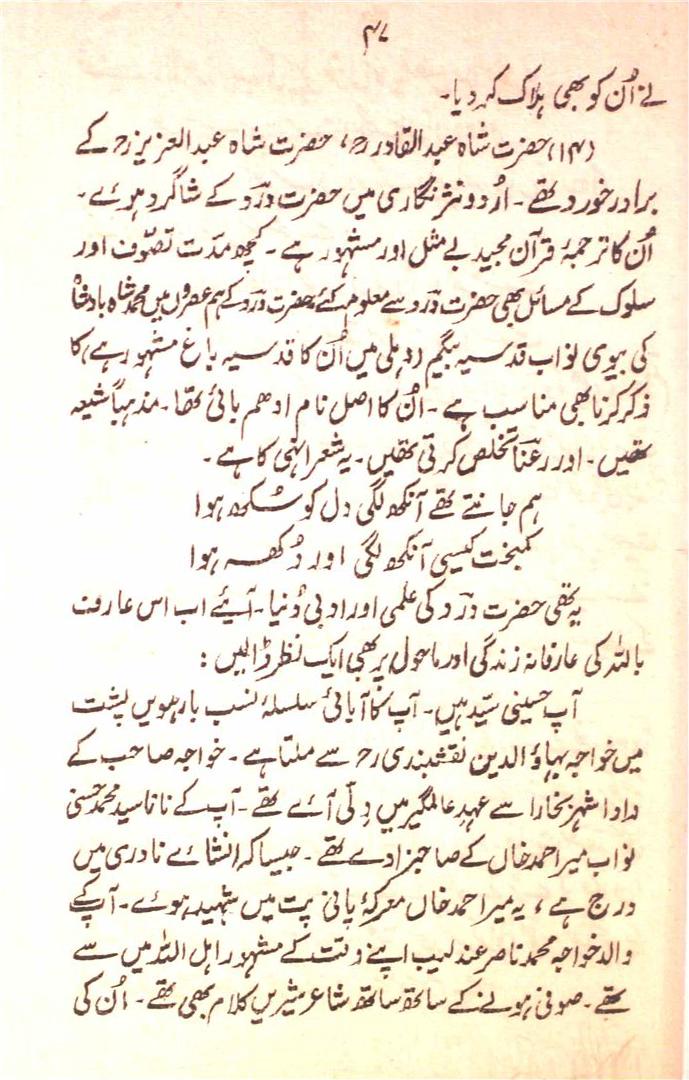 ۴۷
نے اُن کو بھی ہلاک کر دیا۔
(۱۴) حضرت شاہ عبدالقادرؒ، حضرت شاہ عبدالعزیزؒ کے
برادر خورد تھے۔ اُردو نثر نگاری میں حضرت دردؔ کے شاگرد ہوئے۔
اُن کا ترجمۂ قرآن مجید بے مثل اور مشہور ہے۔ کچھ مدّت تصوّف اور
سلوک کے مسائل بھی حضرت دردؔ سے معلوم کئے۔ حضرت دردؔ کے ہم عصروں میں محمد شاہ بادشاہ
کی بیوی نواب قدسیہ بیگم (دہلی میں اُن کا قدسیہ باغ مشہور ہے) کا
ذکر کرنا بھی مناسب ہے۔ اُن کا اصل نام ادھم بائی تھا۔ مذہباً شیعہ
تھیں۔ اور رعنؔا تخلص کرتی تھیں۔ یہ شعر انہی کا ہے۔
ہم جانتے تھے آنکھ لگی دل کو سُکھ ہوا
کمبخت کیسی آنکھ لگی اور دُکھ ہوا
یہ تھی حضرت دردؔ کی علمی اور ادبی دُنیا۔ آیئے اب اس عارف
باللہ کی عارفانہ زندگی اور ماحول پر بھی ایک نظر ڈالیں :
آپ حسینی سیّد ہیں۔ آپ کا آبائی سلسلۂ نسب بارہویں پشت
میں خواجہ بہاؤ الدین نقشبندیؒ سے ملتا ہے۔ خواجہ صاحب کے
دادا شہر بخارا سے عہدِ عالمگیر میں دِلّی آئے تھے۔ آپ کے نانا سید محمد حسنی
نواب میر احمد خاں کے صاحبزادے تھے۔ جیسا کہ انشائے نادری میں
درج ہے، یہ میر احمد خاں معرکۂ پانی پت میں شہید ہوئے۔ آپ کے
والد خواجہ محمد ناصر عندلیب اپنے وقت کے مشہور اہل اللہ میں سے
تھے۔ صوفی ہونے کے ساتھ ساتھ شاعر شیریں کلام بھی تھے۔ اُن کی